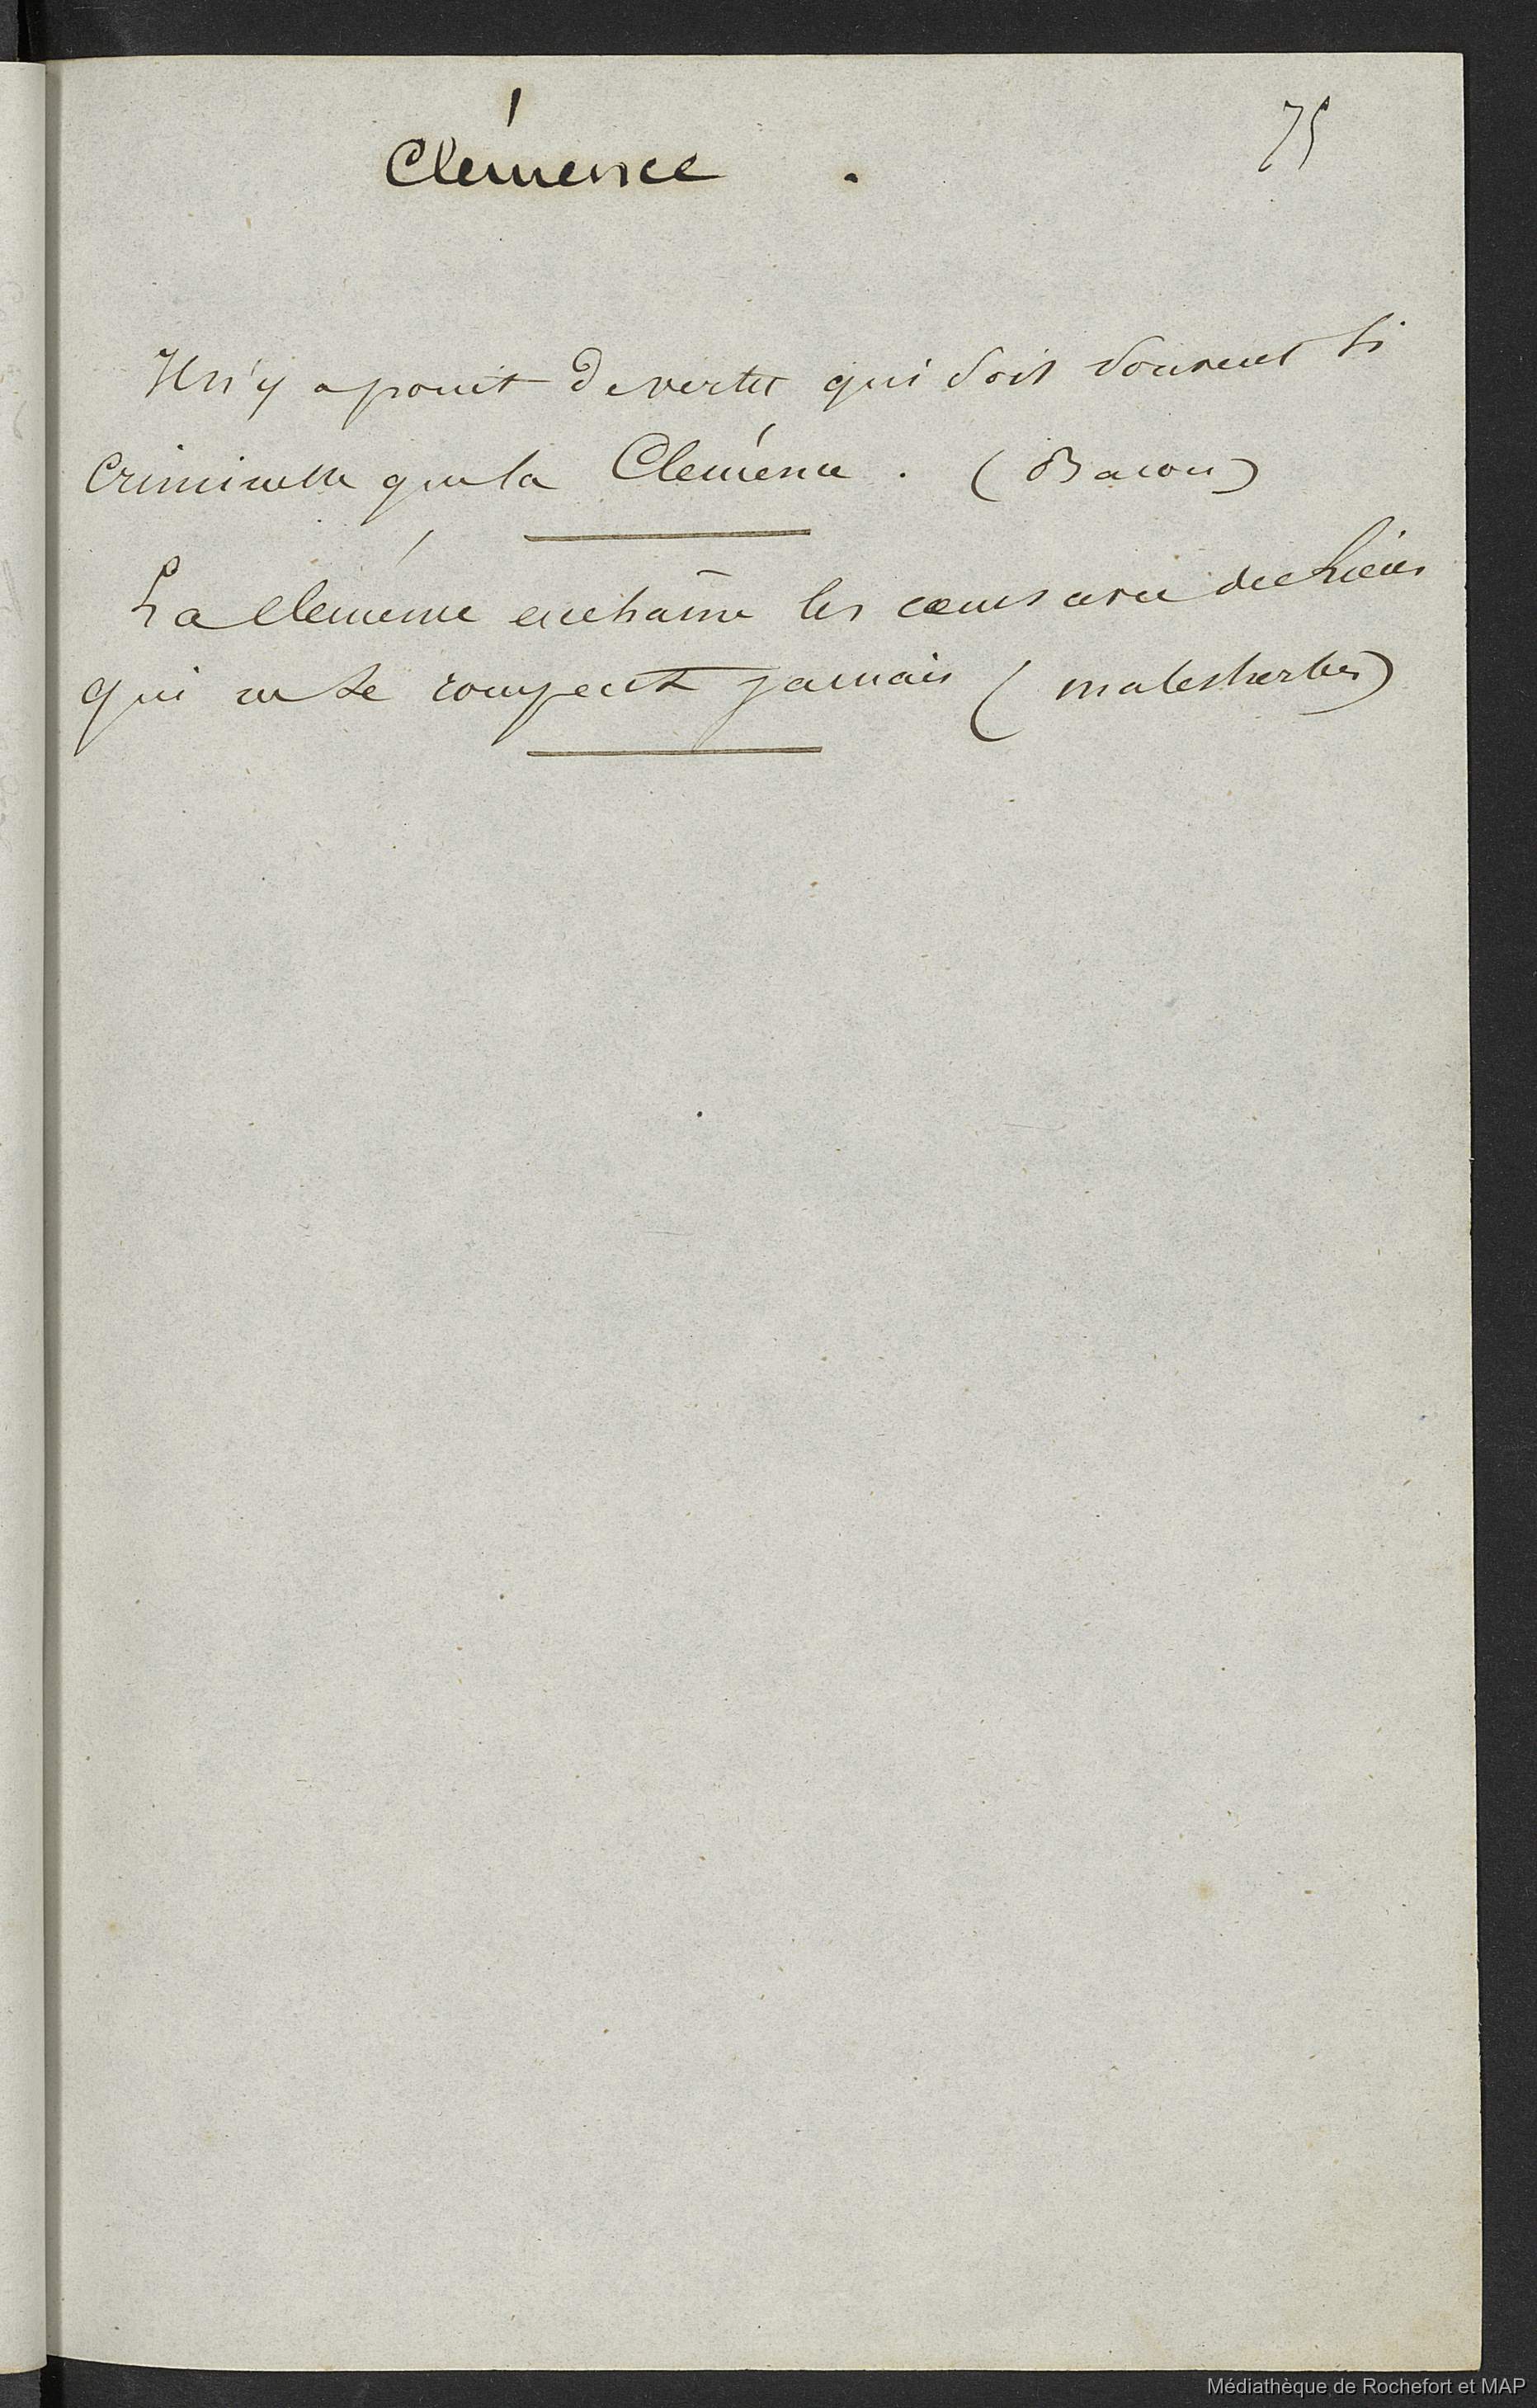 75
Clémence .
Il n'y a point de vertu qui soit souvent si
Criminelle que la Clémence . (Bacon)
La clémence enchaîne les cœurs avec des liens
qui ne se rompent jamais (malesherbes)
Médiathèque de Rochefort et MAP